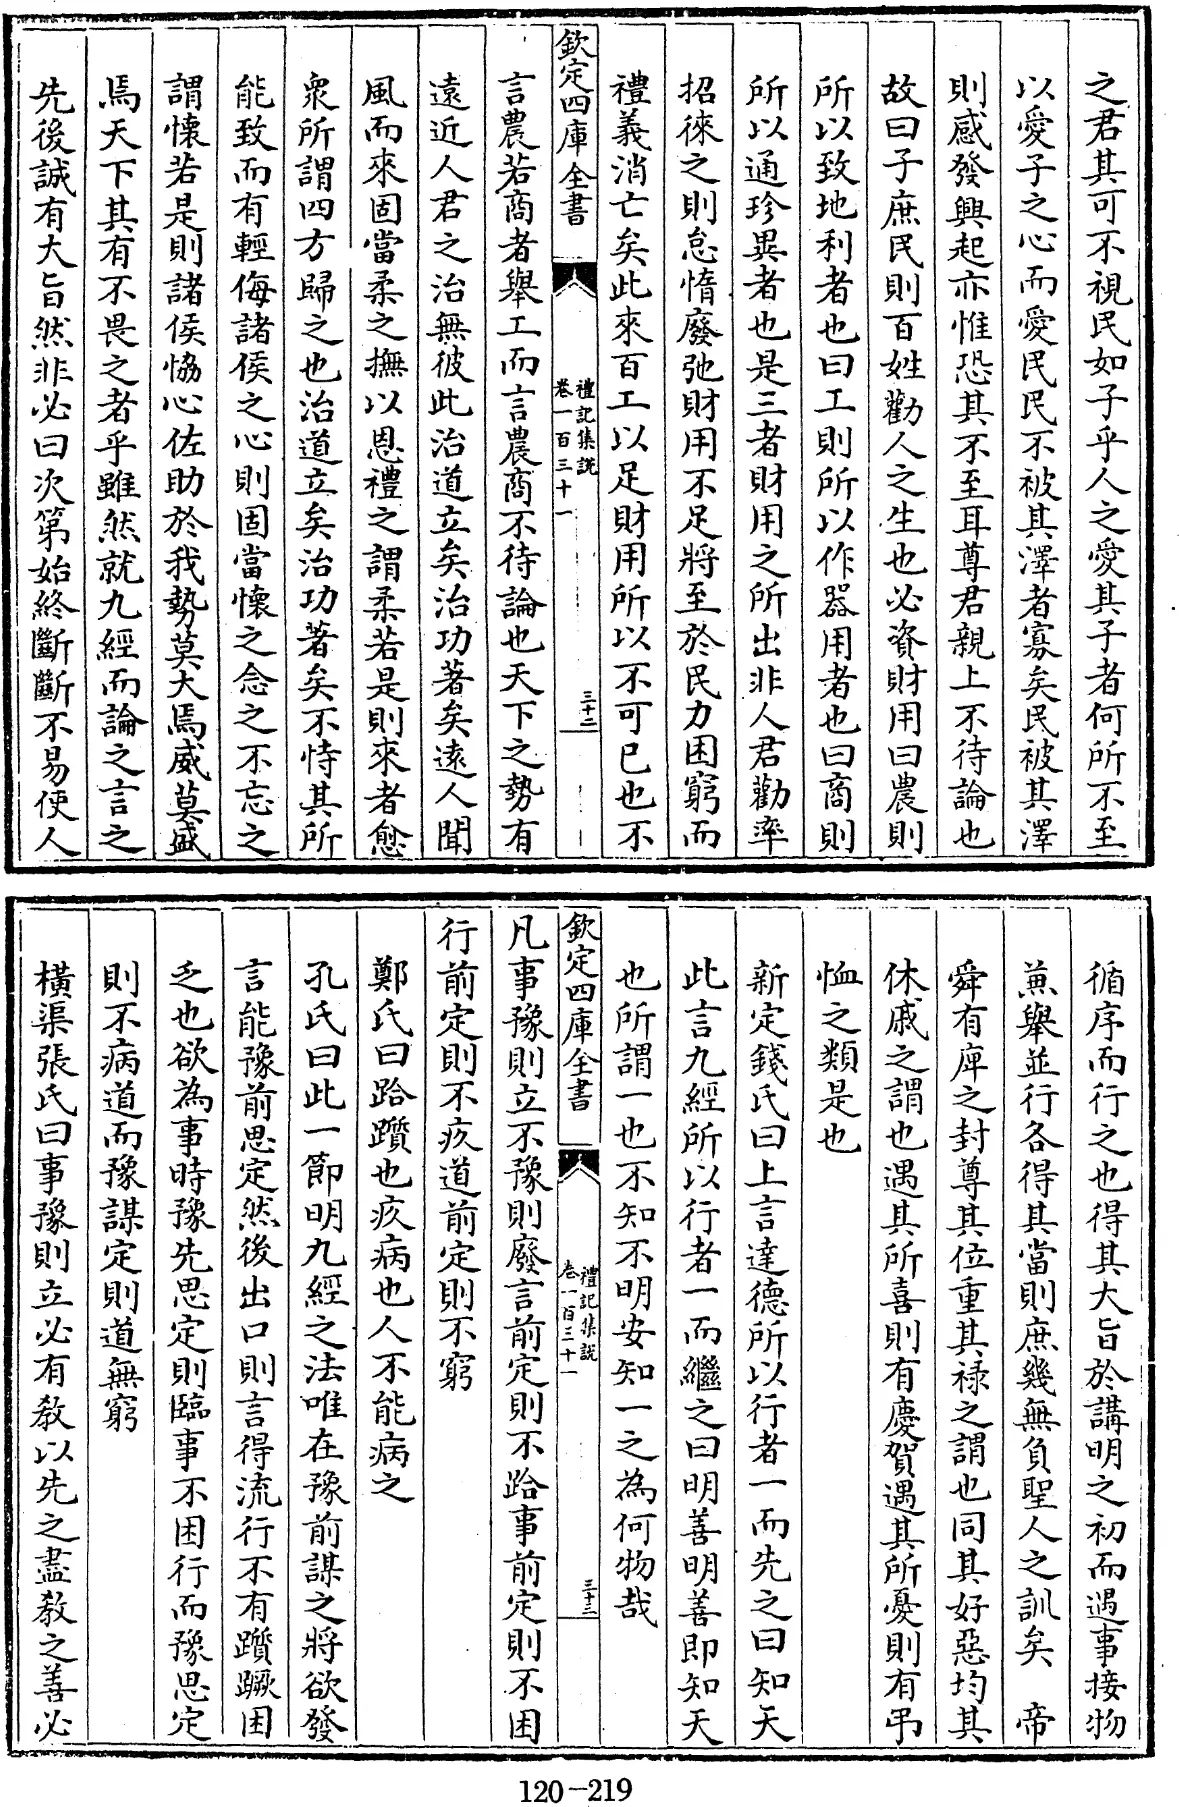 之君其可不視民如子乎人之愛其子者何所不至
以愛子之心而愛民民不被其澤者寡矣民被其澤
則感發興起亦惟恐其不至耳尊君親上不待論也
故曰子庶民則百姓勸人之生也必資財用曰農則
所以致地利者也曰工則所以作器用者也曰商則
所以通珍異者也是三者財用之所出非人君勸率
招徠之則怠惰廢弛財用不足將至於民力困窮而
禮義消亡矣此來百工以足財用所以不可已也不
欽定四庫全書
禮記集說
卷一百三十一
三十二
言農若商者舉工而言農商不待論也天下之勢有
遠近人君之治無彼此治道立矣治功著矣遠人聞
風而來固當柔之撫以恩禮之謂柔若是則來者愈
衆所謂四方歸之也治道立矣治功著矣不恃其所
能致而有輕侮諸侯之心則固當懷之念之不忘之
謂懷若是則諸侯恊心佐助於我勢莫大焉威莫盛
焉天下其有不畏之者乎雖然就九經而論之言之
先後誠有大旨然非必曰次第始終斷斷不易使人
循序而行之也得其大旨於講明之初而遇事接物
兼舉並行各得其當則庶幾無負聖人之訓矣 帝
舜有庳之封尊其位重其祿之謂也同其好惡均其
休戚之謂也遇其所喜則有慶賀遇其所憂則有弔
恤之類是也
新定錢氏曰上言達德所以行者一而先之曰知天
此言九經所以行者一而繼之曰明善明善即知天
也所謂一也不知不明安知一之為何物哉
欽定四庫全書
禮記集說
卷一百三十一
三十三
凡事豫則立不豫則廢言前定則不跲事前定則不困
行前定則不疚道前定則不窮
鄭氏曰跲躓也疚病也人不能病之
孔氏曰此一節明九經之法唯在豫前謀之將欲發
言能豫前思定然後出口則言得流行不有躓蹶困
乏也欲為事時豫先思定則臨事不困行而豫思定
則不病道而豫謀定則道無窮
橫渠張氏曰事豫則立必有教以先之盡教之善必
120-219